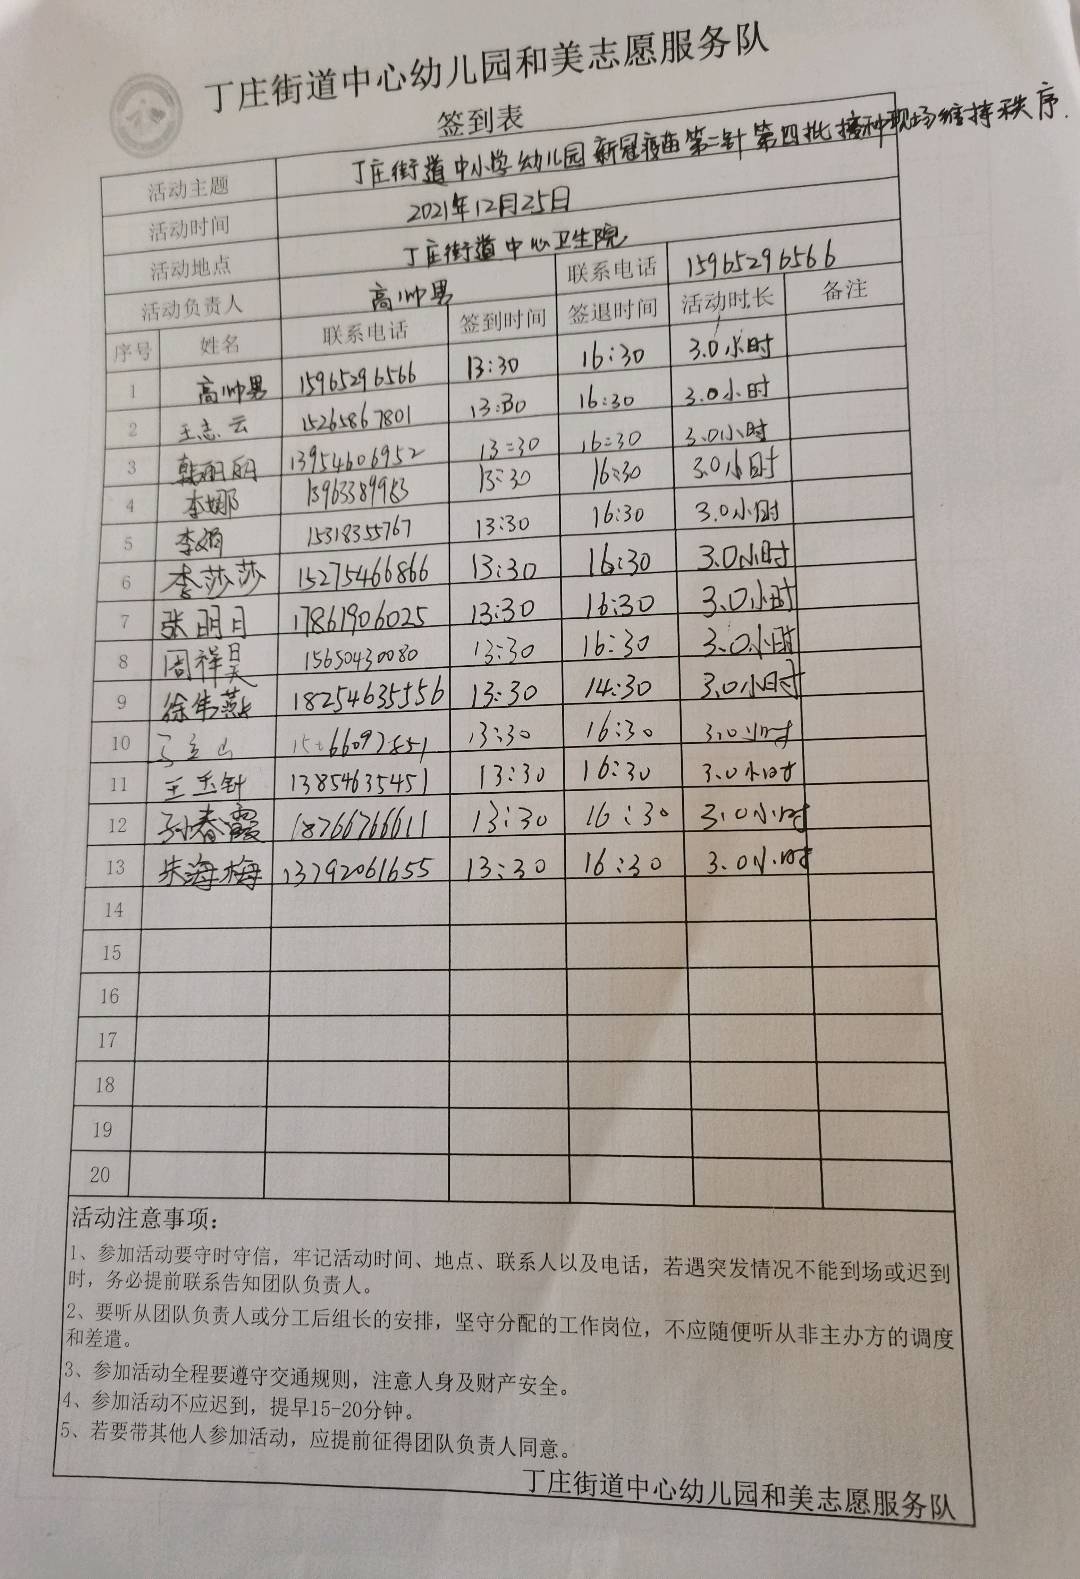 丁庄街道中心幼儿园和美志愿服务队
签到表
活动主题 丁庄街道中小学幼儿园新冠疫苗第二针第四批接种现场维持秩序.
活动时间 2021年12月25日
活动地点 丁庄街道中心卫生院
活动负责人 高帅男 联系电话 15965296566
序号 姓名 联系电话 签到时间 签退时间 活动时长 备注
1 高帅男 15965296566 13:30 16:30 3.0小时
2 王志云 15265867801 13:30 16:30 3.0小时
3 韩丽丽 13954606952 13:30 16:30 3.0小时
4 李娜 13:30 16:30 3.0小时
5 李娟 15318355767 13:30 16:30 3.0小时
6 李莎莎 15275466866 13:30 16:30 3.0小时
7 张明月 17861906025 13:30 16:30 3.0小时
8 周祥昊 15650430080 13:30 16:30 3.0小时
9 徐伟燕 18254635556 13:30 14:30 3.0小时
10 13:30 16:30 3.0小时
11 王玉针 13854635451 13:30 16:30 3.0小时
12 孙春霞 18766766611 13:30 16:30 3.0小时
13 朱海梅 13792061655 13:30 16:30 3.0小时
14
15
16
17
18
19
20
活动注意事项：
1、参加活动要守时守信，牢记活动时间、地点、联系人以及电话，若遇突发情况不能到场或迟到
时，务必提前联系告知团队负责人。
2、要听从团队负责人或分工后组长的安排，坚守分配的工作岗位，不应随便听从非主办方的调度
和差遣。
3、参加活动全程要遵守交通规则，注意人身及财产安全。
4、参加活动不应迟到，提早15-20分钟。
5、若要带其他人参加活动，应提前征得团队负责人同意。
丁庄街道中心幼儿园和美志愿服务队